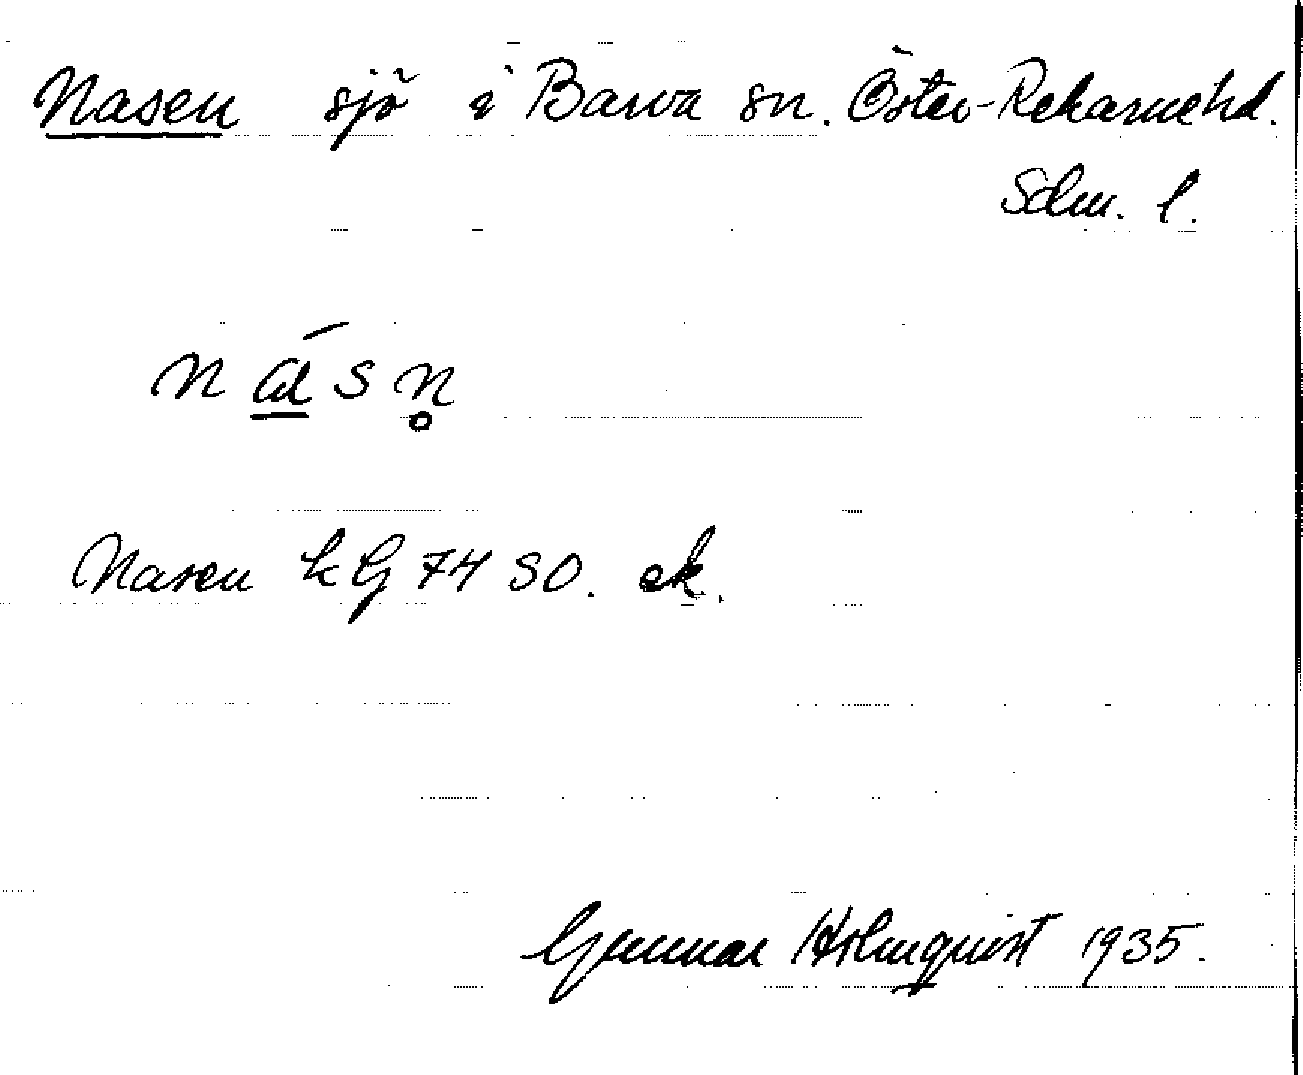 Nasen sjö i Barva sn. Öster-Rekarne hd.
Sdm. l.
n á̲ s n̥
Nasen kG 74 SO. ek.
Gunnar Holmquist 1935.